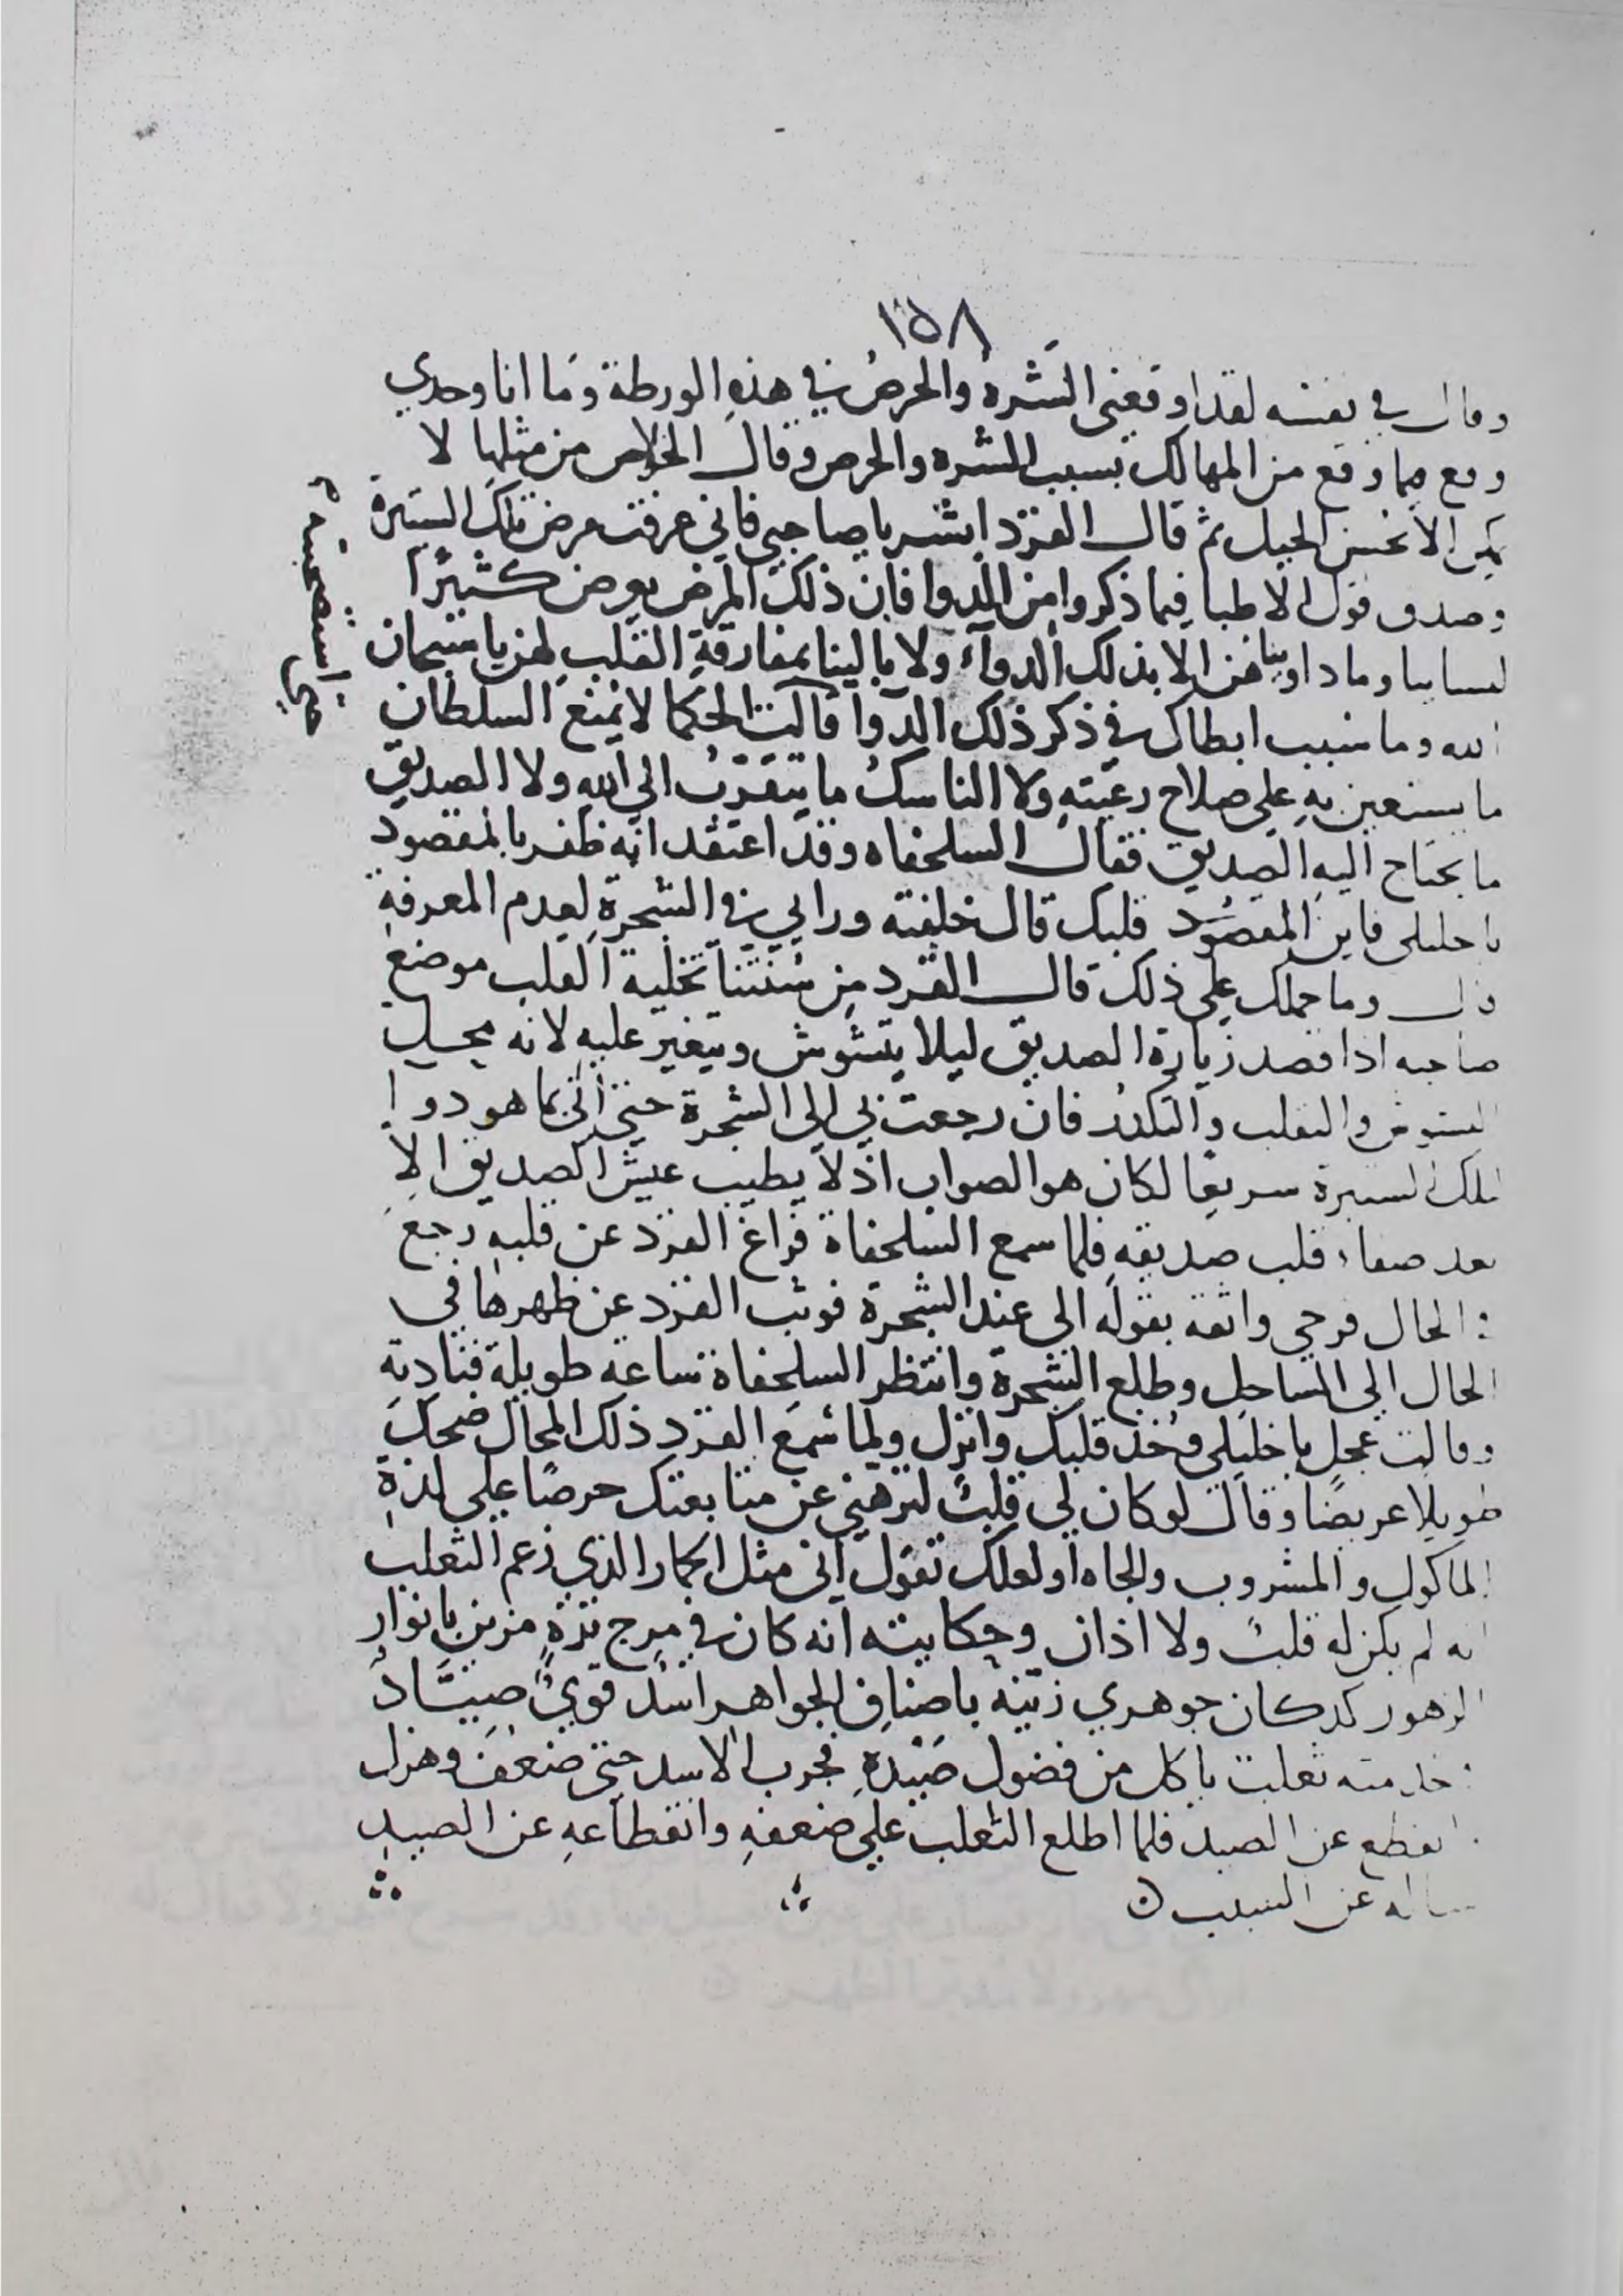 ١٥٨
وقال في نفسه لقد اوقعني الشره والحرص في هذه الورطة وما انا وحدي
وقع بما وقع من المهالك بسبب الشره والحرص وقال الخلاص من مثلها لا
يمكن الا بحسن الحيل ثم قال القرد ابشر يا صاحبي فاني عرفت مرض تلك الستيرة
وصدق قول الاطبا فيما ذكروا من الدوا فان ذلك المرض يعرض كثيرًا
لنسائنا وما داويناهن الا بذلك الدوآء ولا بالينا بمفارقة القلب لهن يا سبحان
الله وما سبب ابطاك في ذكر ذلك الدوا قالت الحكما لا يمنع السلطان
ما يستعين به على صلاح رعيته ولا الناسك ما يتقرب الى الله ولا الصديق
ما يحتاح اليه الصديق فقال السلحفاه وقد اعتقد انه ظفر بالمقصود
يا خليلي فاين المقصود قلبك قال خلفته ورايي في الشجرة لعدم المعرفه
قال وما حملك على ذلك قال القرد من سنتنا تخلية القلب موضع
صاحبه اذا قصد زيارة الصديق ليلا يتشوش ويتغير عليه لانه محل
التشوش والتقلب والتكدر فان رجعت بي الى الشجرة حتى اتي بما هو دوا
لتلك الستيرة سريعا لكان هو الصواب اذ لا يطيب عيش الصديق الا
بعد صفاء قلب صديقه فلما سمع السلحفاة فراغ القرد عن قلبه رجع
في الحال فرحي واثقه بقوله الى عند الشجرة فوثب القرد عن ظهرها في
الحال الى الساحل وطلع الشجرة وانتظر السلحفاة ساعه طويلة فنادته
وقالت عجل يا خليلي وخذ قلبك وانزل ولما سمع القرد ذلك المحال ضحك
طويلا عريضًا وقال لو كان لي قلب لنزهني عن متابعتك حرصًا على لذة
الماكول والمشروب والجاه او لعلك تقول اني مثل الحمار الذي زعم الثعلب
انه لم يكن له قلب ولا اذان وحكايته انه كان في مرج نزهٍ مزين بانوار
الزهور كدكان جوهري زينه باصناف الجواهر اسد قوي صيّاد
في خدمته ثعلب ياكل من فضول صيده فجرب الاسد حتى ضعف وهزل
وانقطع عن الصيد فلما اطلع الثعلب على ضعفه وانقطاعه عن الصيد
ساله عن السبب
استصحبته